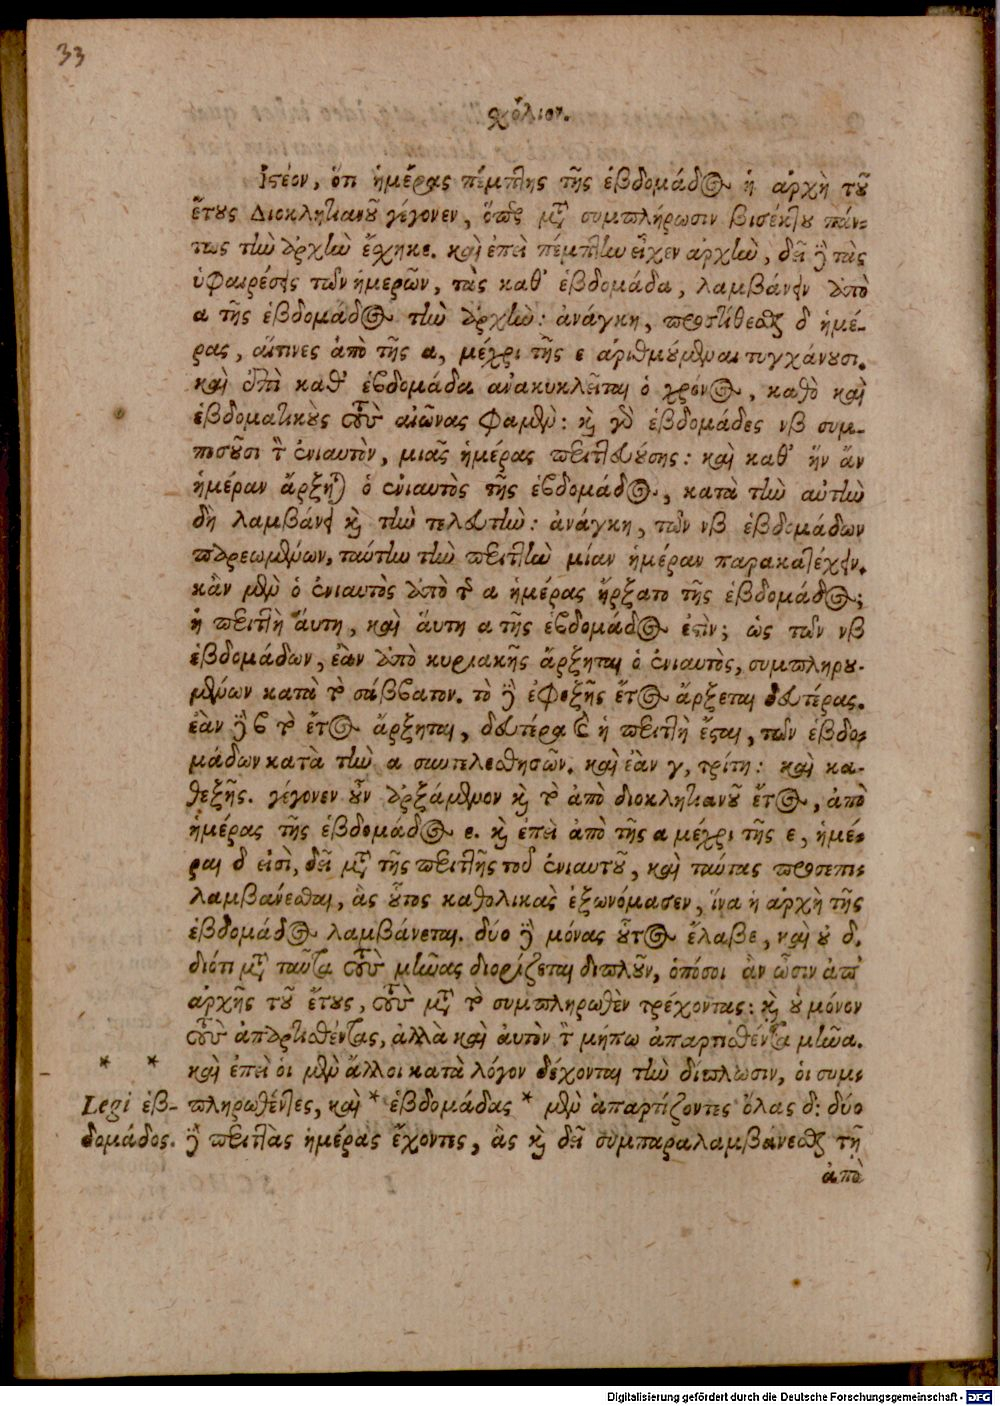 33
σχόλιον.
Ἰστέον, ὅτι ἡμέρας πέμπτης τῆς ἑβδομάδος ἡ ἀρχὴ τοῦ
ἔτους Διοκλητιανοῦ γέγονεν, ὅπερ μετὰ συμπλήρωσιν βισέκτου πάν-
τως τὴν ἀρχὴν ἔσχηκε. καὶ ἐπεὶ πέμπτην εἶχεν ἀρχὴν, δεῖ δὲ τὰς
ὑφαιρέσεις τῶν ἡμερῶν, τὰς καθ' ἑβδομάδα, λαμβάνειν ἀπὸ
α τῆς ἑβδομάδος τὴν ἀρχὴν: ἀνάγκη, προστίθεσθαι δ ἡμέ-
ρας, αἵτινες ἀπὸ τῆς α, μέχρι τῆς ε ἀριθμούμεναι τυγχάνουσι.
καὶ ἐπὶ καθ' ἑβδομάδα ἀνακυκλεῖται ὁ χρόνος, καθὸ καὶ
ἑβδοματικοὺς τοὺς αἰῶνας φαμὲν: καὶ γὰρ ἑβδομάδες νβ συμ-
πισοῦσι τὸν ἐνιαυτὸν, μιᾶς ἡμέρας περιττευούσης: καὶ καθ' ἥν ἄν
ἡμέραν ἄρξηται ὁ ἐνιαυτὸς τῆς ἑβδομάδος, κατὰ τὴν αὐτὴν
δὴ λαμβάνει καὶ τὴν τελευτὴν: ἀνάγκη, τῶν νβ ἑβδομάδων
παρεωμένων, ταύτην τὴν περιττὴν μίαν ἡμέραν παρακατέχειν.
κἂν μὲν ὁ ἐνιαυτὸς ἀπὸ τῆς α ἡμέρας ἤρξατο τῆς ἑβδομάδος;
ἡ περιττὴ αὕτη, καὶ αὕτη α τῆς ἑβδομάδος ἐστὶν; ὡς τῶν νβ
ἑβδομάδων, ἐὰν ἀπὸ κυριακῆς ἄρξηται ὁ ἐνιαυτὸς, συμπληρου-
μένων κατὰ τὸ σάββατον. τὸ δὲ ἐφεξῆς ἔτος ἄρξεται δευτέρας.
ἐὰν δὲ β τὸ ἔτος ἄρξηται, δευτέρα καὶ ἡ περιττὴ ἔσται, τῶν ἑβδο-
μάδων κατὰ τὴν α συντελεσθησῶν. καὶ ἐὰν γ, τρίτη: καὶ κα-
θεξῆς. γέγονεν οὖν ἀρξάμενον καὶ τὸ ἀπὸ διοκλητιανοῦ ἔτος, ἀπὸ
ἡμέρας τῆς ἑβδομάδος ε. καὶ ἐπεὶ ἀπὸ τῆς α μέχρι τῆς ε, ἡμέ-
ραι δ εἰσὶ, δεῖ μετὰ τῆς περιττῆς τοῦ ἐνιαυτοῦ, καὶ ταύτας προσεπι-
λαμβάνεσθαι, ἃς οὗτος καθολικὰς ἐξωνόμασεν, ἵνα ἡ ἀρχὴ τῆς
ἑβδομάδος λαμβάνεται. δύο δὲ μόνας οὗτος ἔλαβε, καὶ οὐ δ.
διότι μετὰ ταῦτα τοὺς μῆνας διορίζεται διπλοῦν, ὁπόσοι ἂν ὦσιν ἀπ'
ἀρχῆς τοῦ ἔτους, τοὺς μετὰ τὸ συμπληρωθὲν τρέχοντας: καὶ οὐ μόνον
τοὺς ἀπαρτισθέντας, ἀλλὰ καὶ αὐτὸν τὸν μήπω ἀπαρτισθέντα μῆνα.
* * καὶ ἐπεὶ οἱ μὲν ἄλλοι κατὰ λόγον δέχονται τὴν δίπλωσιν, οἱ συμ-
Legi ἑβ- πληρωθέντες, καὶ * ἑβδομάδας * μὲν ἀπαρτίζοντες ὅλας δ: δύο
δομάδος. δὲ περιττὰς ἡμέρας ἔχοντες, ἃς καὶ δεῖ συμπαραλαμβάνεσθαι τῇ
ἀπὸ
Digitalisierung gefördert durch die Deutsche Forschungsgemeinschaft - DFG